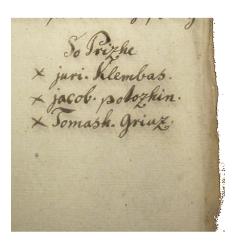 So Prizhe
× juri. Klembas.
× jacob. potozhin.
× Tomash. Griaz.